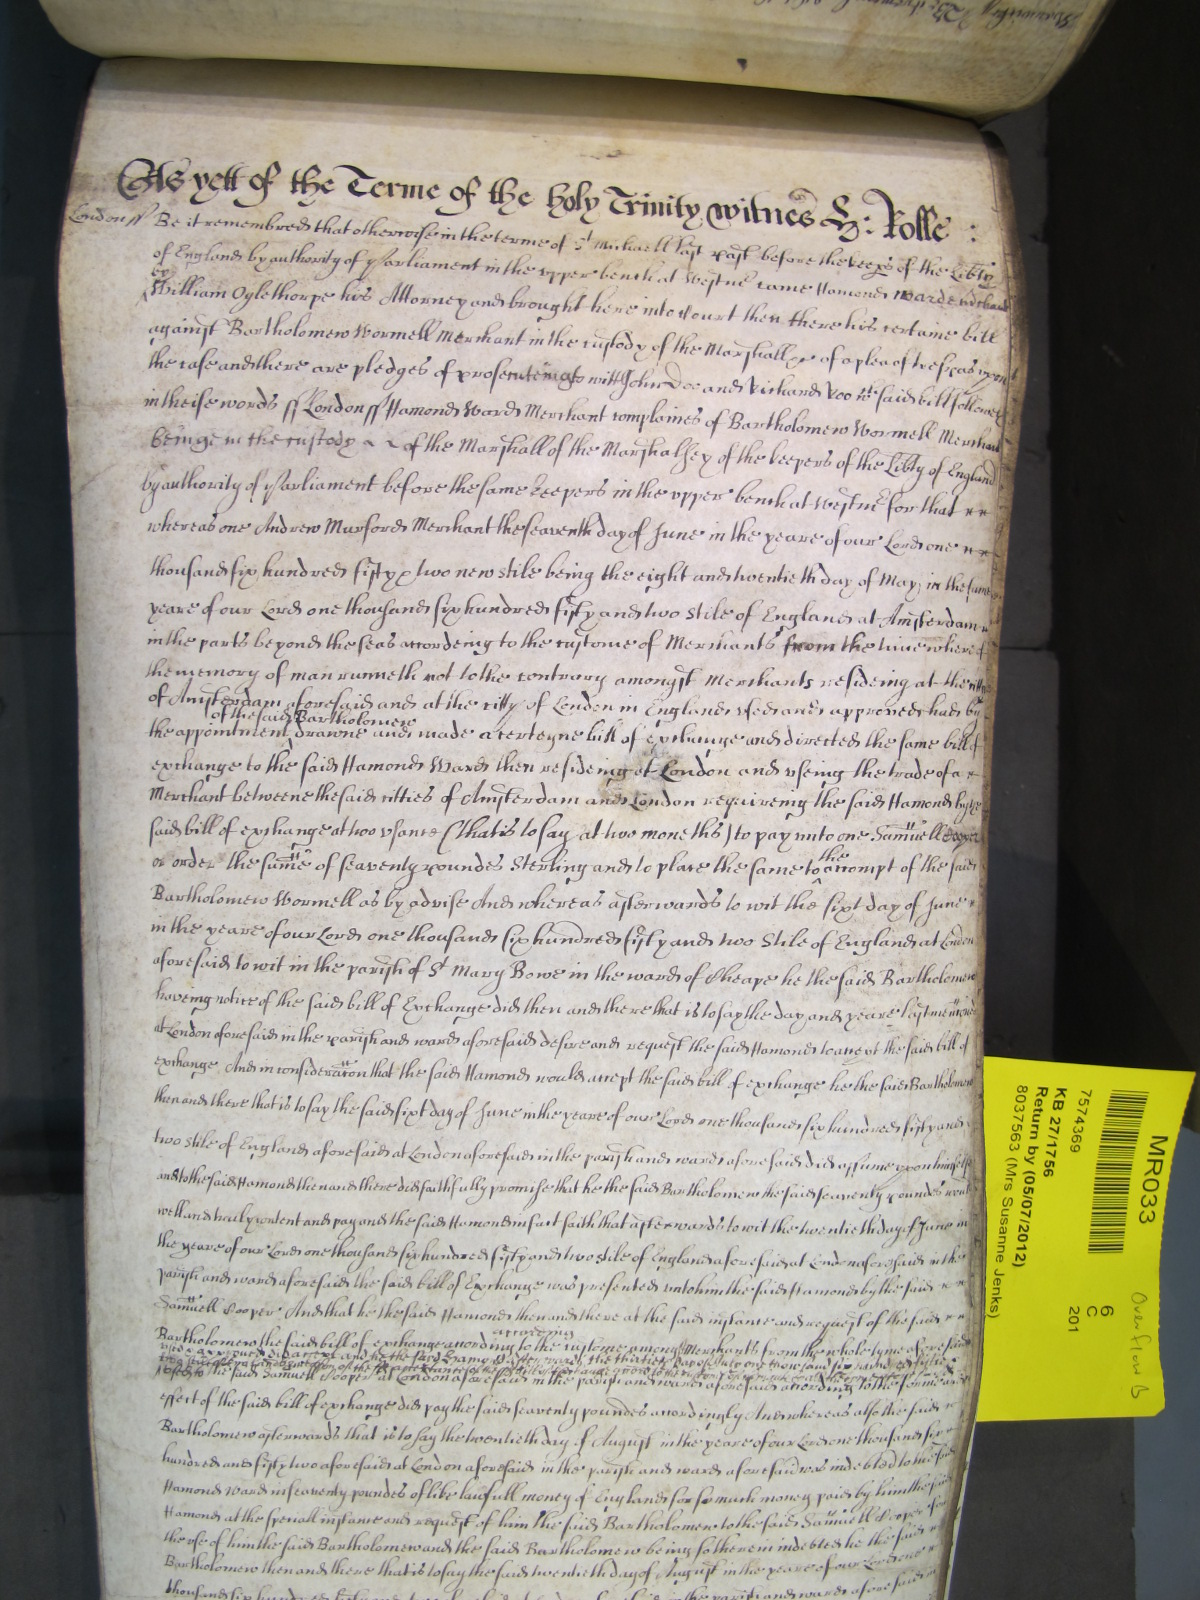 As yett of the Terme of the holy Trinity witnes H: Rolle :
London ss Be it remembred that otherwise in the terme of St Michaell last past before the keeps of the Libty
of England by authority of Parliament in the upper bench at Westmr came Hamond Ward
by
William Oglethorpe his Attorney and brought here into Court then there his certaine bill
against Bartholomew Wormell Merchant in the custody of the Marshall &c of a plea of trespas upon
the case and there are pledges of prosecuteing to witt John Doe and Richard Roo wch said bill followes
in theise words ss London ss Hamond Ward Merchant complaines of Bartholomew Wormell Merchant
being in the custody of the Marshall of the Marshalsey of the keepers of the Libty of England
by authority of Parliament before the same keepers in the upper bench at Westmr for that
whereas one Andrew Mursord Merchant the seaventh day of June in the yeare of our Lord one
thousand six hundred fifty & two new stile being the eight and twentieth day of May in the same
yeare of our Lord one thousand six hundred fifty and two stile of England at Amsterdam
in the parts beyond the seas accordeing to the custome of Merchants from the time whereof
the memory of man runneth not to the contrary amongst Merchants resideing at the citty
of Amsterdam aforesaid and at the citty of London in England used and approved had by
of the said Bartholomew
the appointment drawne and made a certeyne bill of exchange and directed the same bill of
exchange to the said Hamond Ward then resideing at London and useing the trade of a
Merchant betweene the said citties of Amsterdam and London requireing the said Hamond by the
said bill of exchange at two usance (that is to say at two moneths) to pay unto one Samuell Cooper
or order the sume of seaventy poundes Sterling and to place the same to the accompt of the said
Bartholomew Wormell as by advise And whereas afterwards to wit the sixt day of June
in the yeare of our Lord one thousand six hundred fifty and two Stile of England at London
aforesaid to wit in the parish of St Mary Bowe in the ward of Cheape he the said Bartholomew
haveing notice of the said bill of Exchange did then and there that is to say the day and yeare last mentioned
at London aforesaid in the parish and ward aforesaid desire and request the said Hamond to accept the said bill of
exchange And in consideracon that the said Hamond would accept the said bill of exchange he the said Bartholomew
then and there that is to say the said sixt day of June in the yeare of our Lord one thousand six hundred fifty and
two stile of England aforesaid at London aforesaid in the parish and ward aforesaid did assume upon himselfe
and to the said Hamond then and there did faithfully promise that he the said Bartholomew the said seaventy poundes would
well and truly content and pay and the said Hamond in fact saith that afterwards to wit the twentieth day of June in
the yeare of our Lord one thousand six hundred fifty and two stile of England aforesaid at London aforesaid in the
parish and ward aforesaid the said bill of Exchange was presented unto him the said Hamond by the said
Samuell Cooper And that he the said Hamond then and there at the said instance and request of the said
Bartholomew the said bill of exchange according to the custome among Merchants from the whole tyme aforesaid
used & approved did accept and he the said Hamond afterwards the thirtieth day of July one thousand six hundred fifty
to the said Samuell Cooper at London aforesaid in the parish and ward aforesaid according to the forme and
effect of the said bill of exchange did pay the said seaventy poundes accordingly And whereas also the said
Bartholomew afterwards that is to say the twentieth day of August in the yeare of our Lord one thousand six
hundred and fifty two aforesaid at London aforesaid in the parish and ward aforesaid was indebted to the said
Hamond Ward in seaventy poundes of like lawfull money of England for so much money paid by him the said
Hamond at the speciall instance and request of him the said Bartholomew to the said Samuell Cooper for
the use of him the said Bartholomew and the said Bartholomew being so therein indebted he the said
Bartholomew then and there that is to say the said twentieth day of August in the yeare of our Lord one
thousand six hundred fifty and two in the parish and ward aforesaid
MR033
7574369
KB 27/1756
Return by (05/07/2012)
8037563 (Mrs Susanne Jenks)
6
C
201
Overflow B